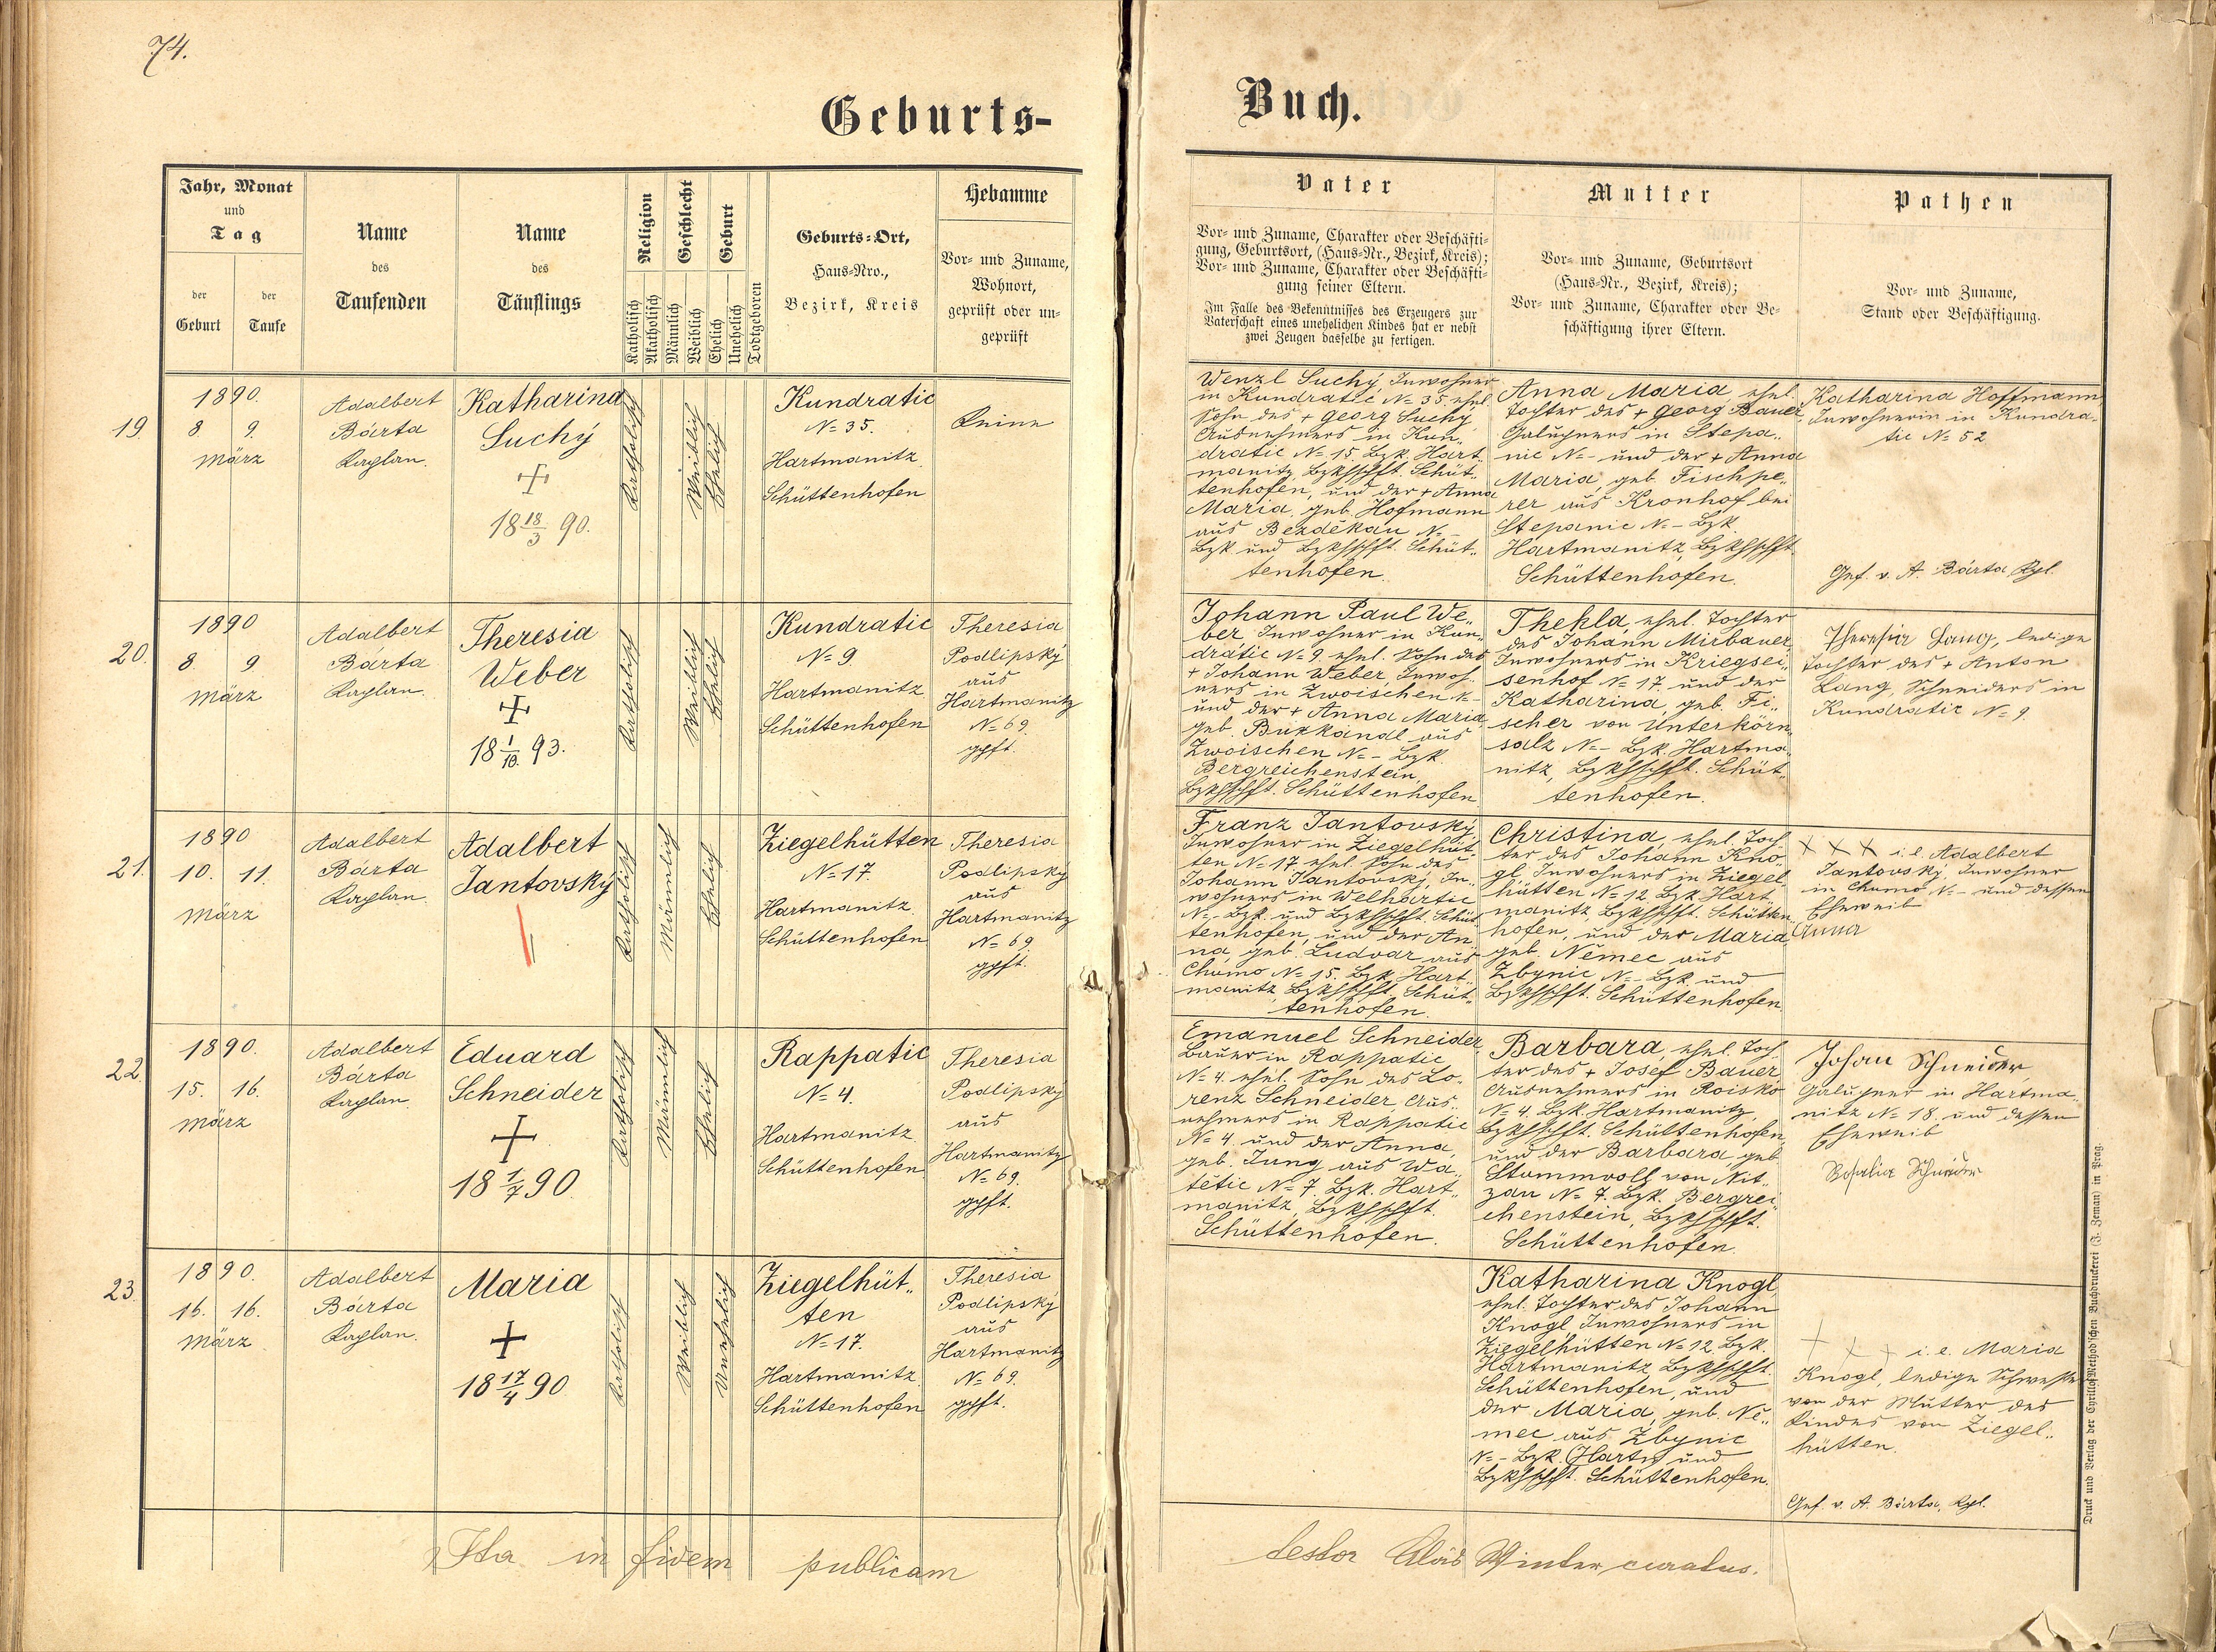 74.
Geburts-
Buch.
Jahr, Monat
und
Tag
der
Geburt
der
Taufe
Name
des
Taufenden
Name
des
Täuflings
Religion
Katholisch
Akatholisch
Geschlecht
Männlich
Weiblich
Geburt
Ehelich
Unehelich
Todtgeboren
Geburts-Ort,
Haus-Nro.,
Bezirk, Kreis
Hebamme
Vor- und Zuname,
Wohnort,
geprüft oder un-
geprüft
Vater
Vor- und Zuname, Charakter oder Beschäfti-
gung, Geburtsort, (Haus-Nr., Bezirk, Kreis);
Vor- und Zuname, Charakter oder Beschäfti-
gung seiner Eltern.
Im Falle des Bekenntnisses des Erzeugers zur
Vaterschaft eines unehelichen Kindes hat er nebst
zwei Zeugen dasselbe zu fertigen.
Mutter
Vor- und Zuname, Geburtsort
(Haus-Nr., Bezirk, Kreis);
Vor- und Zuname, Charakter oder Be-
schäftigung ihrer Eltern.
Pathen
Vor- und Zuname,
Stand oder Beschäftigung.
19.
1890.
8. 9.
März
Adalbert
Bárta
Kaplan.
Katharina
Suchý
+
18 18/3 90.
Katholisch
Weiblich
Ehelich
Kundratic
N= 35.
Hartmanitz
Schüttenhofen
Keine
Wenzl Suchý, Inwohner
in Kundratic N= 35. ehel.
Sohn des + Georg Suchý
Ausnehmers in Kun-
dratic N= 15. Bzk. Hart-
manitz, Bzkhschft. Schüt-
tenhofen, und der + Anna
Maria, geb. Hofmann
aus Bezděkau N. –
Bzk. und Bzkhschft. Schüt-
tenhofen.
Anna Maria, ehel.
Tochter des + Georg Bauer,
Galupners in Stepa-
nic N= – und der + Anna
Maria, geb. Fischpe-
rer aus Kronhof bei
Stepanic N= – Bzk.
Hartmanitz, Bzkhschft.
Schüttenhofen.
Katharina Hoffmann,
Inwohnerin in Kundra-
tic N= 52
Gef. v. A. Bárta, Kpl.
20.
1890
8. 9
März
Adalbert
Bárta
Kaplan.
Theresia
Weber
+
18 1/10. 93.
Katholisch
Weiblich
Ehelich
Kundratic
N= 9.
Hartmanitz
Schüttenhofen
Theresia
Podlipský
aus
Hartmanitz
N= 69.
gpft.
Johann Paul We-
ber, Inwohner in Kun-
dratic N= 9. ehel. Sohn des
+ Johann Weber, Inwoh-
ners in Zwoischen N. –
und der + Anna Maria
geb. Bukkandl aus
Zwoischen N= – Bzk.
Bergreichenstein,
Bzkhschft. Schüttenhofen
Thekla, ehel. Tochter
des Johann Mirbauer,
Inwohners in Kriegsei-
senhof N= 17. und der
Katharina, geb. Fi-
scher von Unterkörn-
salz N= – Bzk. Hartma-
nitz, Bzkhschft. Schüt-
tenhofen.
Theresia Lang, ledige
Tochter des + Anton
Lang, Schneiders in
Kundratic N= 9.
21.
1890
10. 11.
März
Adalbert
Bárta
Kaplan.
Adalbert
Jantovský
Katholisch
Männlich
Ehelich
Ziegelhütten
N= 17.
Hartmanitz
Schüttenhofen
Theresia
Podlipský
aus
Hartmanitz
N= 69.
gpft.
Franz Jantovský,
Inwohner in Ziegelhüt-
ten N= 17. ehel. Sohn des
Johann Jantovský, In-
wohners in Welhartic
N= – Bzk. und Bzkhschft. Schüt-
tenhofen, und der An-
na, geb. Ludvar aus
Chumo N= 15. Bzk. Hart-
manitz, Bzkhschft. Schüt-
tenhofen.
Christina, ehel. Toch-
ter des Johann Kno-
gl, Inwohners in Ziegel-
hütten N= 12. Bzk. Hart-
manitz, Bzkhschft. Schütten-
hofen, und der Maria
geb. Němec aus
Zbynic N= – Bzk. und
Bzkhschft. Schüttenhofen.
+ + + i. e. Adalbert
Jantovský, Inwohner
in Chumo N= – und dessen
Eheweib
Anna
22.
1890.
15. 16.
März
Adalbert
Bárta
Kaplan.
Eduard
Schneider
+
18 1/7 90
Katholisch
Männlich
Ehelich
Rappatic
N= 4.
Hartmanitz
Schüttenhofen
Theresia
Podlipský
aus
Hartmanitz
N= 69.
gpft.
Emanuel Schneider,
Bauer in Rappatic
N= 4. ehel. Sohn des Lo-
renz Schneider, Aus-
nehmers in Rappatic
N= 4. und der Anna,
geb. Jung aus Wa-
tětic N= 7. Bzk. Hart-
manitz, Bzkhschft.
Schüttenhofen.
Barbara, ehel. Toch-
ter des + Josef Bauer
Ausnehmers in Roisko
N= 4. Bzk. Hartmanitz,
Bzkhschft. Schüttenhofen,
und der Barbara, geb.
Stammvoll von Nit-
zau N= 7. Bzk. Bergrei-
chenstein, Bzkhschft.
Schüttenhofen.
Johan Schneider,
Galupner in Hartma-
nitz N= 18. und dessen
Eheweib
Rosalia Schneider
23.
1890.
16. 16.
März
Adalbert
Bárta
Kaplan.
Maria
+
18 17/4 90
Katholisch
Weiblich
Unehelich
Ziegelhüt-
ten
N= 17.
Hartmanitz
Schüttenhofen
Theresia
Podlipský
aus
Hartmanitz
N= 69.
gpft.
Katharina Knogl,
ehel. Tochter des Johann
Knogl Inwohners in
Ziegelhütten N= 12. Bzk.
Hartmanitz, Bzkhschft.
Schüttenhofen, und
der Maria, geb. Ně-
mec aus Zbynic
N= – Bzk. (Hartm) und
Bzkhschft. Schüttenhofen.
+ + + i. e. Maria
Knogl, ledige Schwester
von der Mutter des
Kindes von Ziegel-
hütten.
Gef. v. A. Bárta, Kpl.
Ita in fidem publicam
testor Alois Winter curatus.
Druck und Verlag der Cyrillo-Method'schen Buchdruckerei (J. Zeman) in Prag.